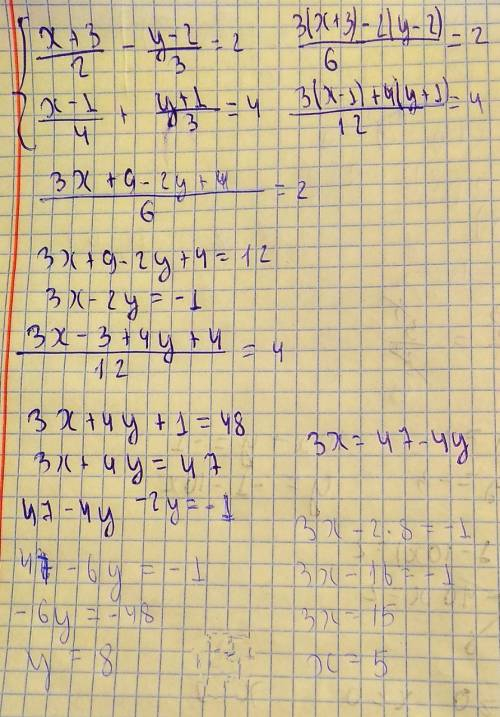 (x+3)/2 - (y-2)/3 = 2
(3(x+3)-2(y-2))/6 = 2
(x-1)/4 + (y+1)/3 = 4
(3(x-1)+4(y+1))/12 = 4
(3x+9-2y+4)/6 = 2
3x+9-2y+4=12
3x-2y=-1
(3x-3+4y+4)/12 = 4
3x+4y+1=48
3x=47-4y
3x+4y=47
47-4y-2y=-1
3x-2·8=-1
47-6y=-1
3x-16=-1
-6y=-48
3x=15
y=8
x=5